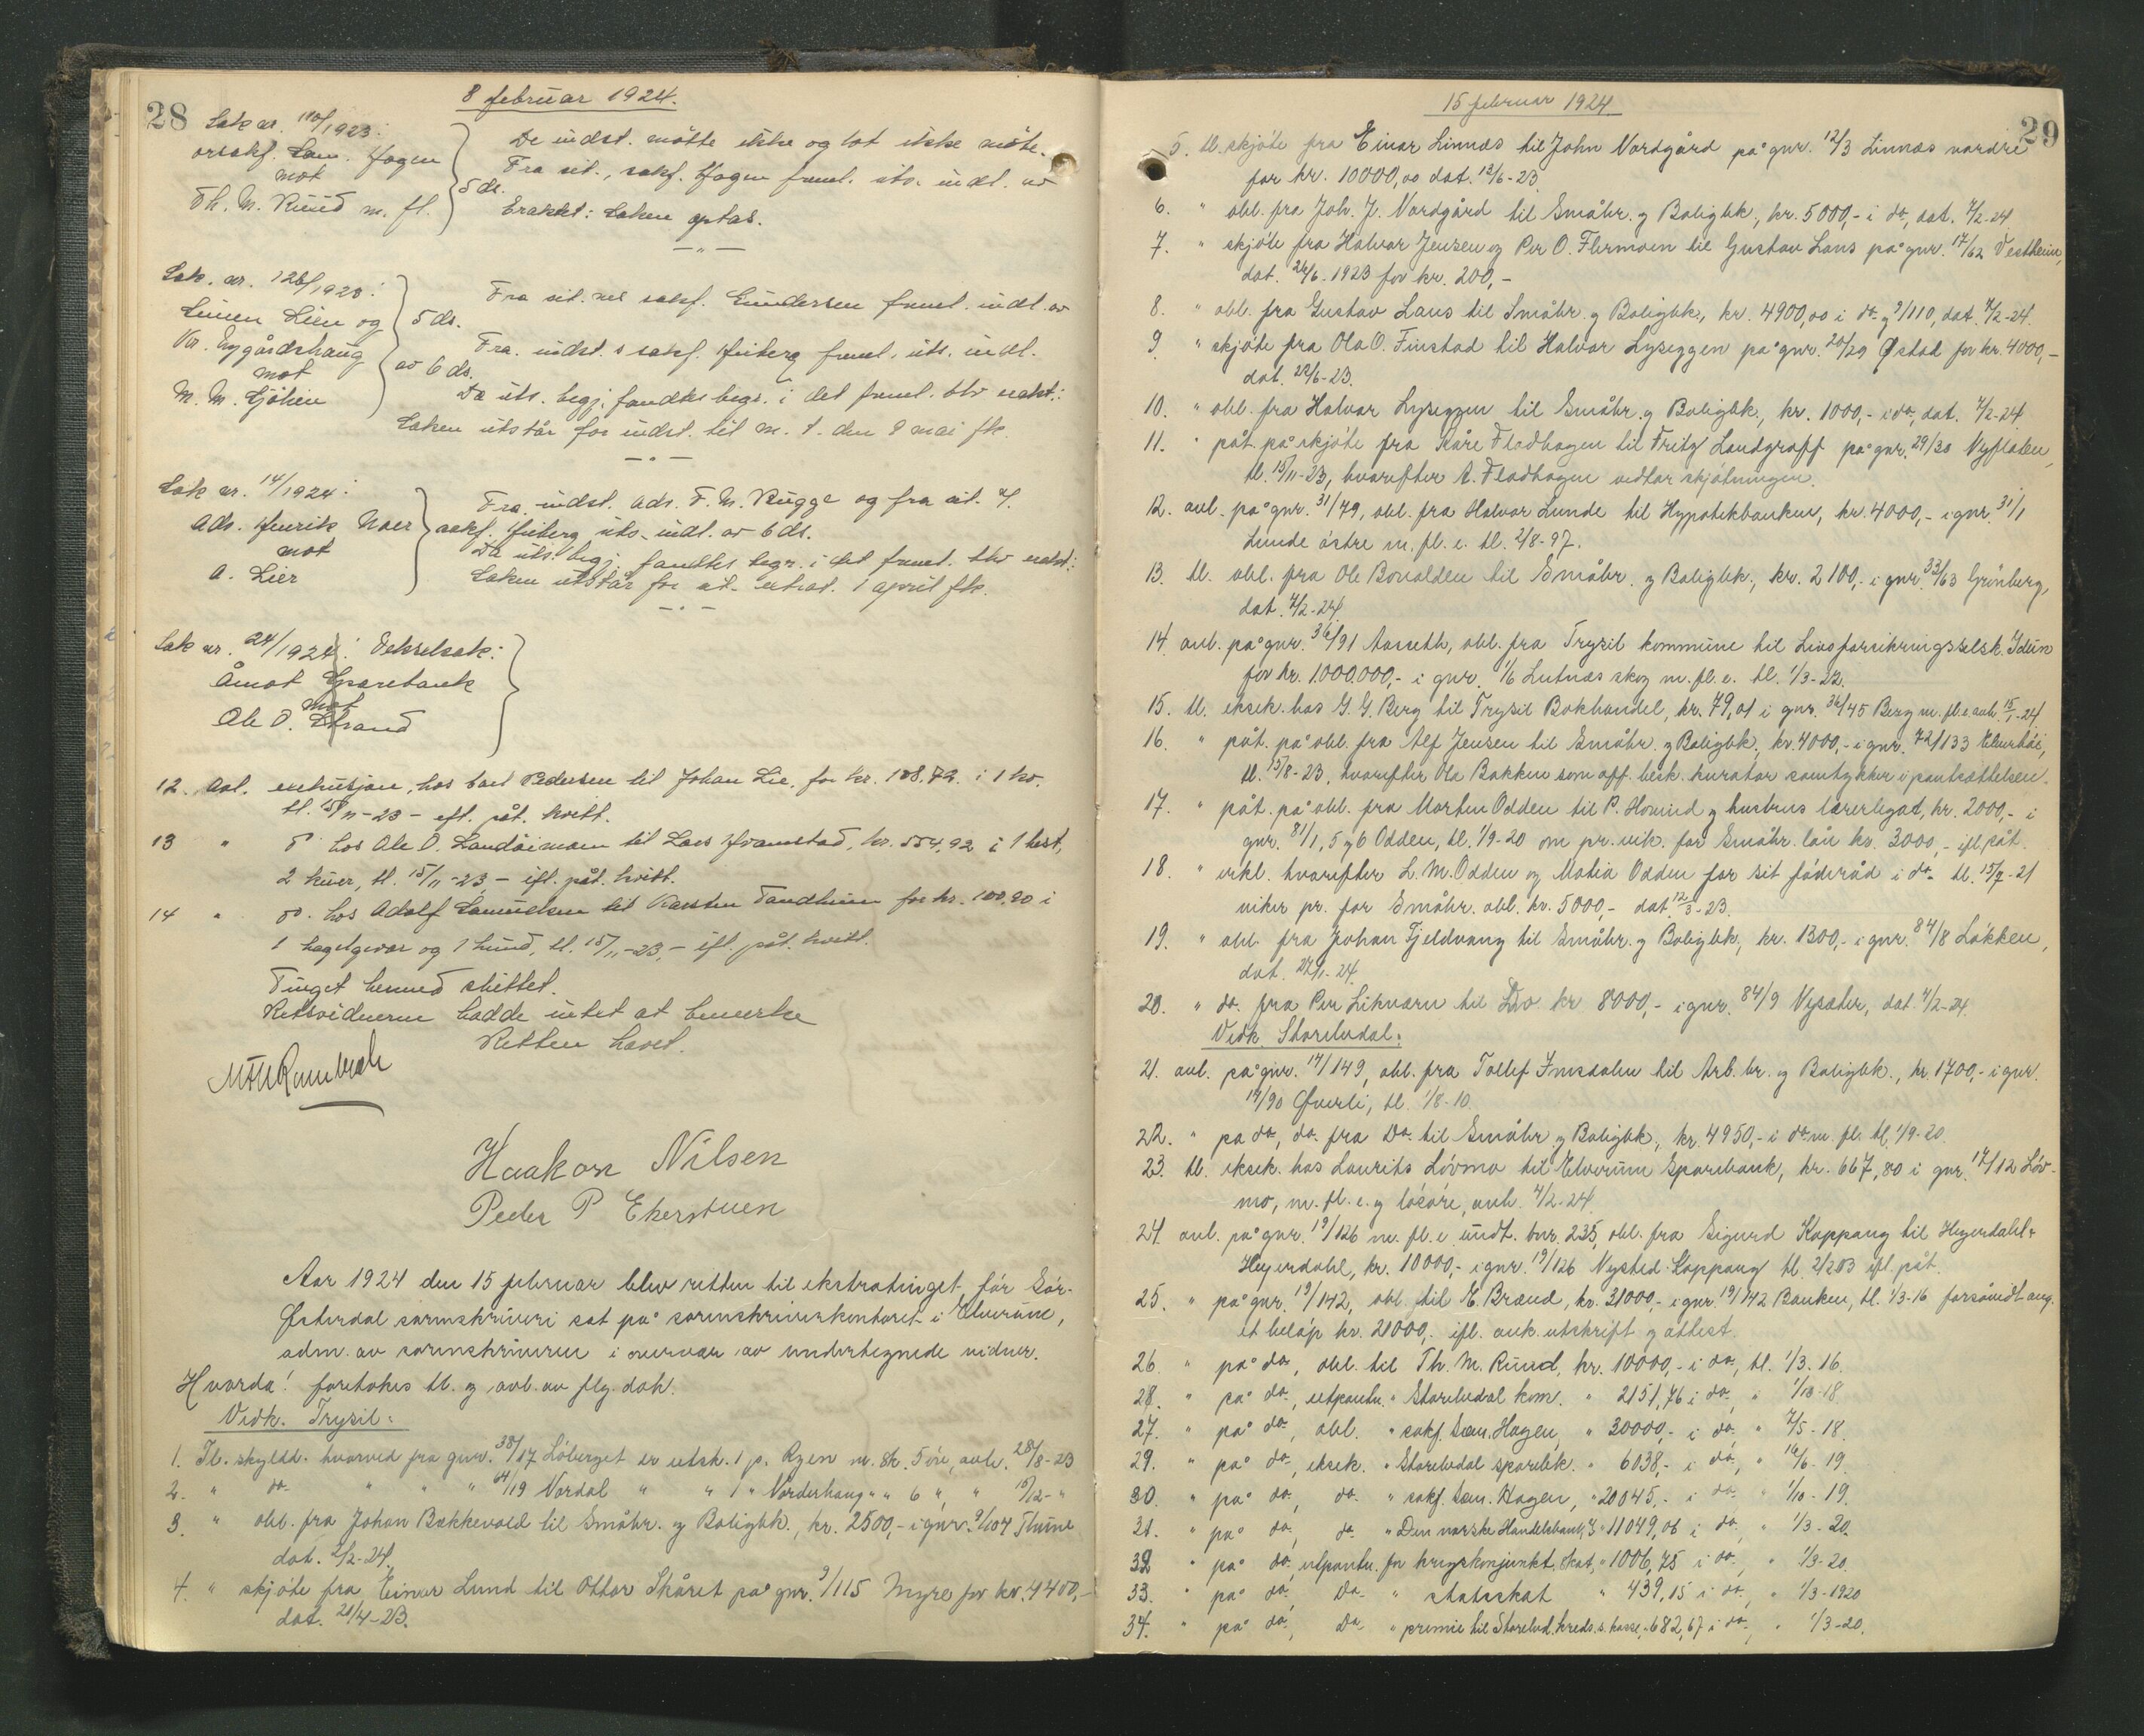 28
8 februar 1924.
Sak nr. 110/1923:
orsakf. Sam. Hagen
mot
Th. M. Ruud m. fl.
5 ds.
De indst. møtte ikke og lot ikke møte.
Fra cit., sakf. Hagen freml. uts. indl. av
Eraktet: Saken optas.
Sak. nr. 128/1923:
Simen Lien og
mot
5 ds.
av 6 ds.
Fra cit. ved sakf. Gundersen freml. indl. av
Fra. indst. s sakf. Friberg freml. uts. indl.
Da uts. begj. fandtes begr. i det freml. blev eraktet:
Saken utstår for indst. til m. t. den 9 mai fk.
Sak nr. 14/1924:
Ads. Henrik Naer
mot
A. Lier
Fra indst. Ads. F. M. Bugge og fra cit. v/
sakf. Friberg uts. indl. av 6 ds.
Da uts. begj. fandtes begr. i det freml. blev eraktet:
Saken utstår for cit. extrat. 1 april fk.
Sak nr. 24/1924: Vekselsak:
Åmot Sparebank
mot
Ole O. Strand
12. Avl. exekusjon, hos Carl Pedersen til Johan Lie, for kr. 108.72. i 1 ko.
tl. 15/11-23 - eft. påt. kvitt.
13 " do hos Ole O. Landåimoen til Lars Framstad, kr. 554,92 i 1 hest,
2 kuer, tl. 15/11-23 - eft. påt. kvitt.
14 " do. hos Adolf Samuelsen til Karsten Sandheim for kr. 100.20 i
1 haglgevær og 1 hund, tl. 15/11-23, - eft. påt. kvitt.
Tinget hermed sluttet.
Retsvidnerne hadde intet at bemerke
Retten hævet.
Haakon Nilsen
Peder P Ekerstuen
Aar 1924 den 15 februar blev retten til ekstratinget for Sör-
Østerdal sorenskriveri sat på sorenskriverkontoret i Elverum,
adm. av sorenskriveren i overvær av undertegnede vidner.
Hvorda! foretokes tl. og avl. av flg. dok.
Vedk. Trysil:
1. Tl. skyldd. hvorved fra gnr. 38/17 Löberget er utsk. 1 p. Ryen m. sk. 5 öre, avh. 28/8-23
2. " do " " " 64/19 Nordal " " 1 " Norderhaug " " 6 ", " 15/12- "
3. " obl. fra Johan Bækkevold til Småbr. og Boligbk., kr. 2500,- i gnr. 9/104 Thune
dat. 2/2-24.
4. " skjöte fra Einar Lund til Ottar Skåret på gnr. 9/115 Myre for kr. 4400,-
dat. 21/4-23.
15 februar 1924.
29
5. tl. skjöte fra Einar Linnæs til John Nordgård på gnr. 12/3 Linnæs nordre
for kr. 10000,00 dat. 12/6-23.
6. " obl. fra Joh. J. Nordgård til Småbr. og Boligbk., kr. 5000,- i do, dat. 7/2-24
7. " skjöte fra Halvar Jensen og Per O. Flermoen til Gustav Laus på gnr. 17/62 Vestheim,
dat. 26/6-1923 for kr. 200,-
8. " obl. fra Gustav Laus til Småbr. og Boligbk., kr. 4900,00 i do og 9/110, dat. 7/2-24.
9. " skjöte fra Ola O. Finstad til Halvar Lyseggen på gnr. 20/29 Østad for kr. 4000,-
dat. 22/6-23.
10. " obl. fra Halvar Lyseggen til Småbr. og Boligbk., kr. 1000,- i do, dat. 7/2-24
11. " påt. på skjöte fra Kåre Fladhagen til Fritz Landgraff på gnr. 29/30 Nyfloten,
tl. 15/11-23, hvorefter A. Fladhagen vedtar skjötningen.
12. avl. på gnr. 31/79, obl. fra Halvor Lunde til Hypotekbanken, kr. 4000,- i gnr. 31/1
Lunde östre m. fl. e. tl. 2/8-97.
13. tl. obl. fra Ole Bonalden til Småbr. og Boligbk., kr. 2100,- i gnr. 33/63 Grönberg,
dat. 7/2-24.
14. avl. på gnr. 36/91 Aaseth, obl. fra Trysil kommune til Livsforsikringsselsk. Idun
for kr. 1.000.000,- i gnr. 1/6 Lutnæs skog m. fl. e. tl. 1/3-22.
15. tl. eksek. hos G. G. Berg til Trysil Bokhandel, kr. 79,01 i gnr. 36/45 Berg m. fl. e. avh. 15/1-24
16. " påt. på obl. fra Alf Jensen til Småbr. og Boligbk., kr. 4000,- i gnr. 72/133 Elverhöi,
tl. 15/8-23, hvorefter Ola Bakken som opp. besk. kurator samtykker i pantsættelsen.
17. " påt. på obl. fra Morten Odden til P. Hovind og hustrus lærerlegat, kr. 2000,- i
gnr. 81/1, 5 og 6 Odden, tl. 1/9-20 om pr. vik. for Småbr. lån kr. 3000,- ifl. påt.
18. " erkl. hvorefter L. M. Odden og Matea Odden for sit föderåd i do tl. 15/7-21
viker pr. for Småbr. obl. kr. 5000,- dat. 12/3-23.
19. " obl. fra Johan Fjeldvang til Småbr. og Boligbk., kr. 1300,- i gnr. 84/8 Lökken,
dat. 22/1-24.
20. " do. fra Per Likværn til Do kr 8000,- i gnr. 84/9 Nysæter, dat. 4/2-24.
Vedk. Storelvdal:
21. avl. på gnr. 14/149, obl. fra Tollef Imsdalen til Arb. br. og Boligbk., kr. 1700,- i gnr.
14/90 Øverli, tl. 1/8-10.
22. " på do, do fra Do til Småbr. og Boligbk., kr. 4950,- i do m. fl. tl. 1/9-20.
23. tl. eksek. hos Laurits Lövmo til Elverum Sparebank, kr. 667,80 i gnr. 17/12 Löv-
mo, m. fl. e. og lösöre, avh. 4/2-24.
24. avl. på gnr. 19/126 m. fl. e. undt. bnr. 235, obl. fra Sigurd Koppang til Heyerdahl &
Heyerdahl, kr. 10000,- i gnr. 19/126 Nysted Koppang tl. 2/203 ifl. påt.
25. " på gnr. 19/142, obl. til E. Brænd, kr. 31000,- i gnr. 19/142 Banken, tl. 1/3-16 forsåvidt ang.
et belöp kr. 21000,- ifl. auk. utskrift og attest.
26. " på do, obl. til Th. M. Ruud, kr. 10000,- i do, tl. 1/3-16.
28. " på do, utpantn. " Storelvdal kom. " 2151,76 i do, " 1/10-18
27. " på do, obl. " sakf. Sam. Hagen, " 30000,- i do " 7/5-18.
29. " på do, eksek. " Storelvdal sparebk. " 6038,- i do, " 16/6-19.
30. " på do, do " sakf. Sam. Hagen, " 20045,- i do " 1/10-19.
31. " på do, do " Den norske Handelsbank, " 11049,06 i do, " 1/3-20.
32 " på do utpantn. for krigskonjunkt. skat, " 1006,75 i do, " 1/3-20
33. " på do, Do " statsskat " 439,15 i do, " 1/3-1920
34. " på do, Do " premie til Storelvd. kreds. s. kasse, " 682,67 i do, " 1/3-20.